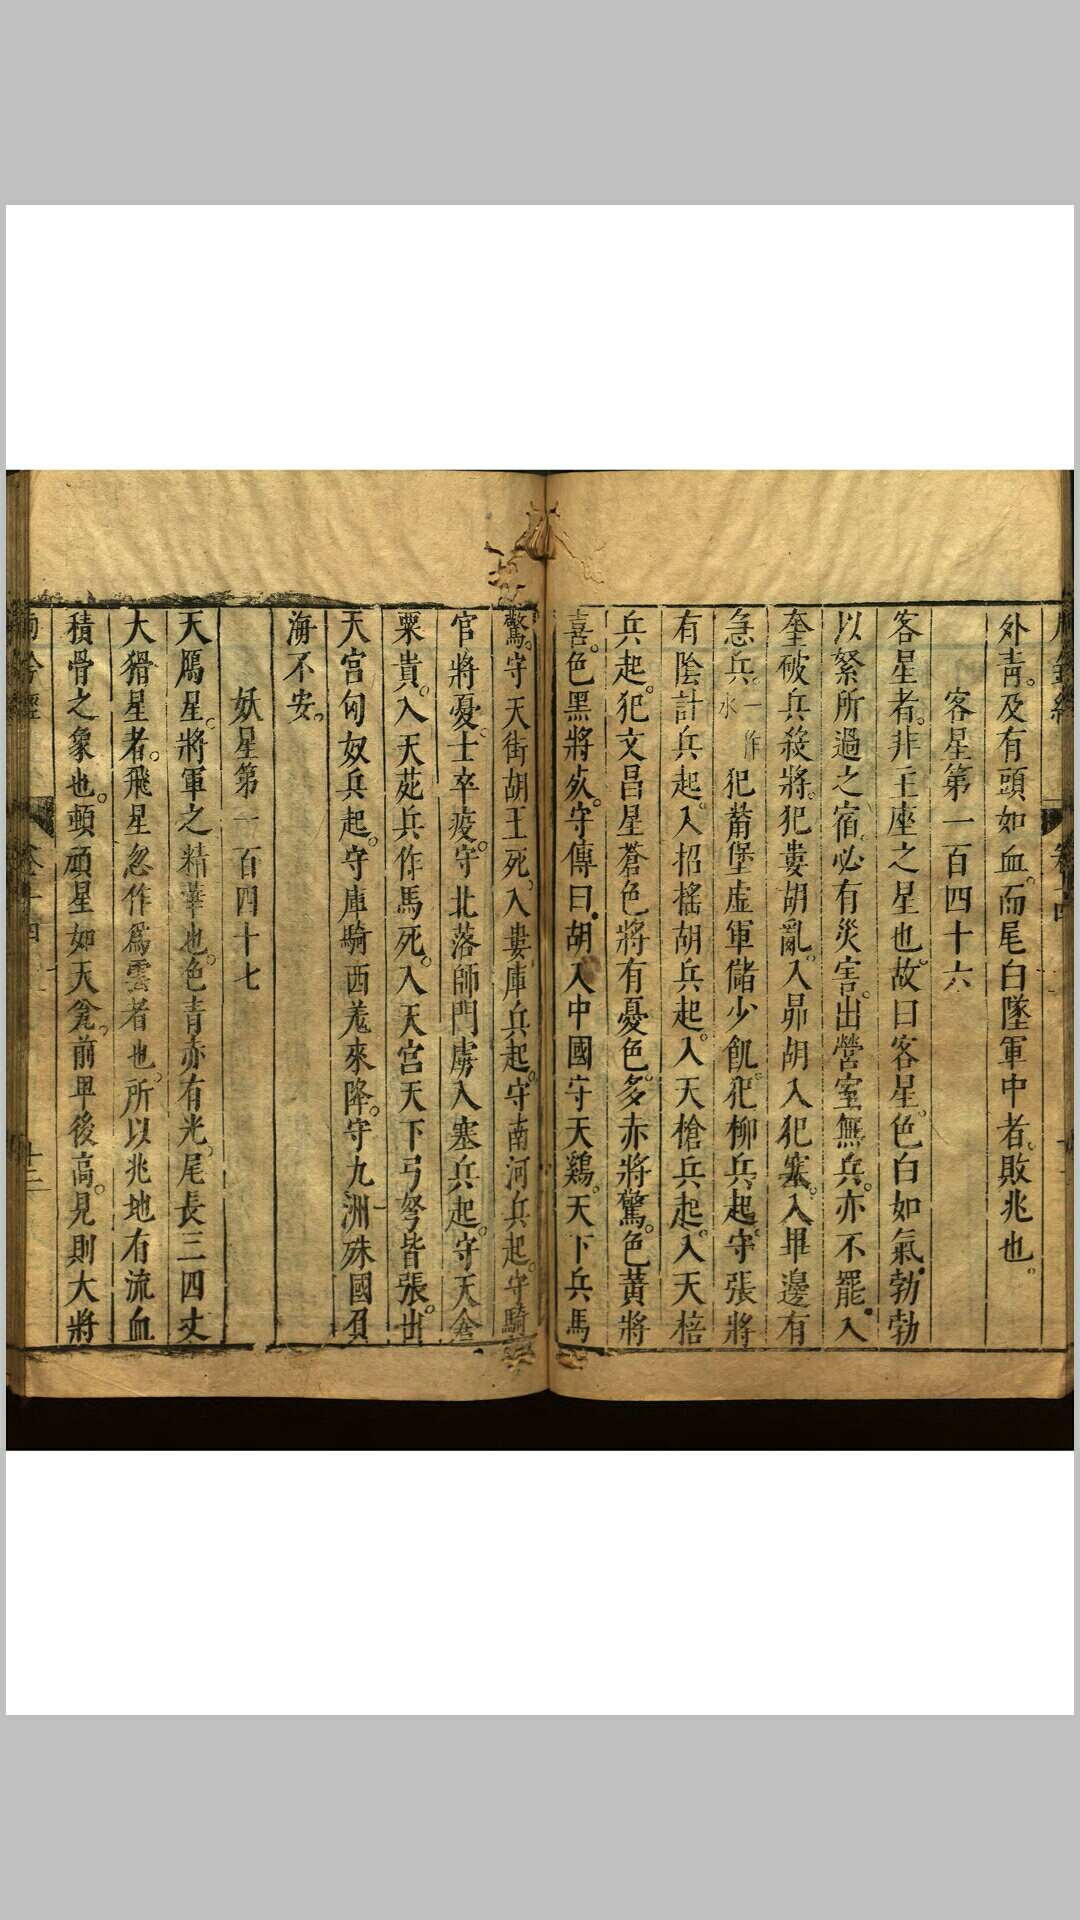 外靑。及有頭如血。而尾白墜軍中者。敗兆也。
客星第一百四十六
客星者。非主座之星也。故曰客星。色白如氣。勃勃
以絮所過之宿。必有災害。出營室無兵。亦不罷。入
奎破兵殺將。犯婁胡亂。入昴胡入犯塞。入畢邊有
急兵。一作水犯蒭堡虛軍儲少飢。犯柳兵起。守張將
有陰計兵起。入招搖胡兵起。入天槍兵起。入天棓
兵起。犯文昌星蒼色將有憂色。多赤將驚。色黃將
喜。色黑將死。守傳曰。胡入中國守天鷄。天下兵馬
驚。守天街胡王死。入婁庫兵起。守南河兵起。守騎
官將憂。士卒疫。守北落師門虜入塞兵起。守天倉
粟貴。入天苑兵作馬死。入天宮天下弓弩皆張。出
天宮匈奴兵起。守庫騎西羗來降。守九洲殊國負
海不安。
妖星第一百四十七
天鴈星。將軍之精華也。色青赤有光。尾長三四丈
大猾星者。飛星忽作爲雲者也。所以兆地有流血
積骨之象也。頓頑星如天瓮。前卑後高。見則大將
卷十四
十三